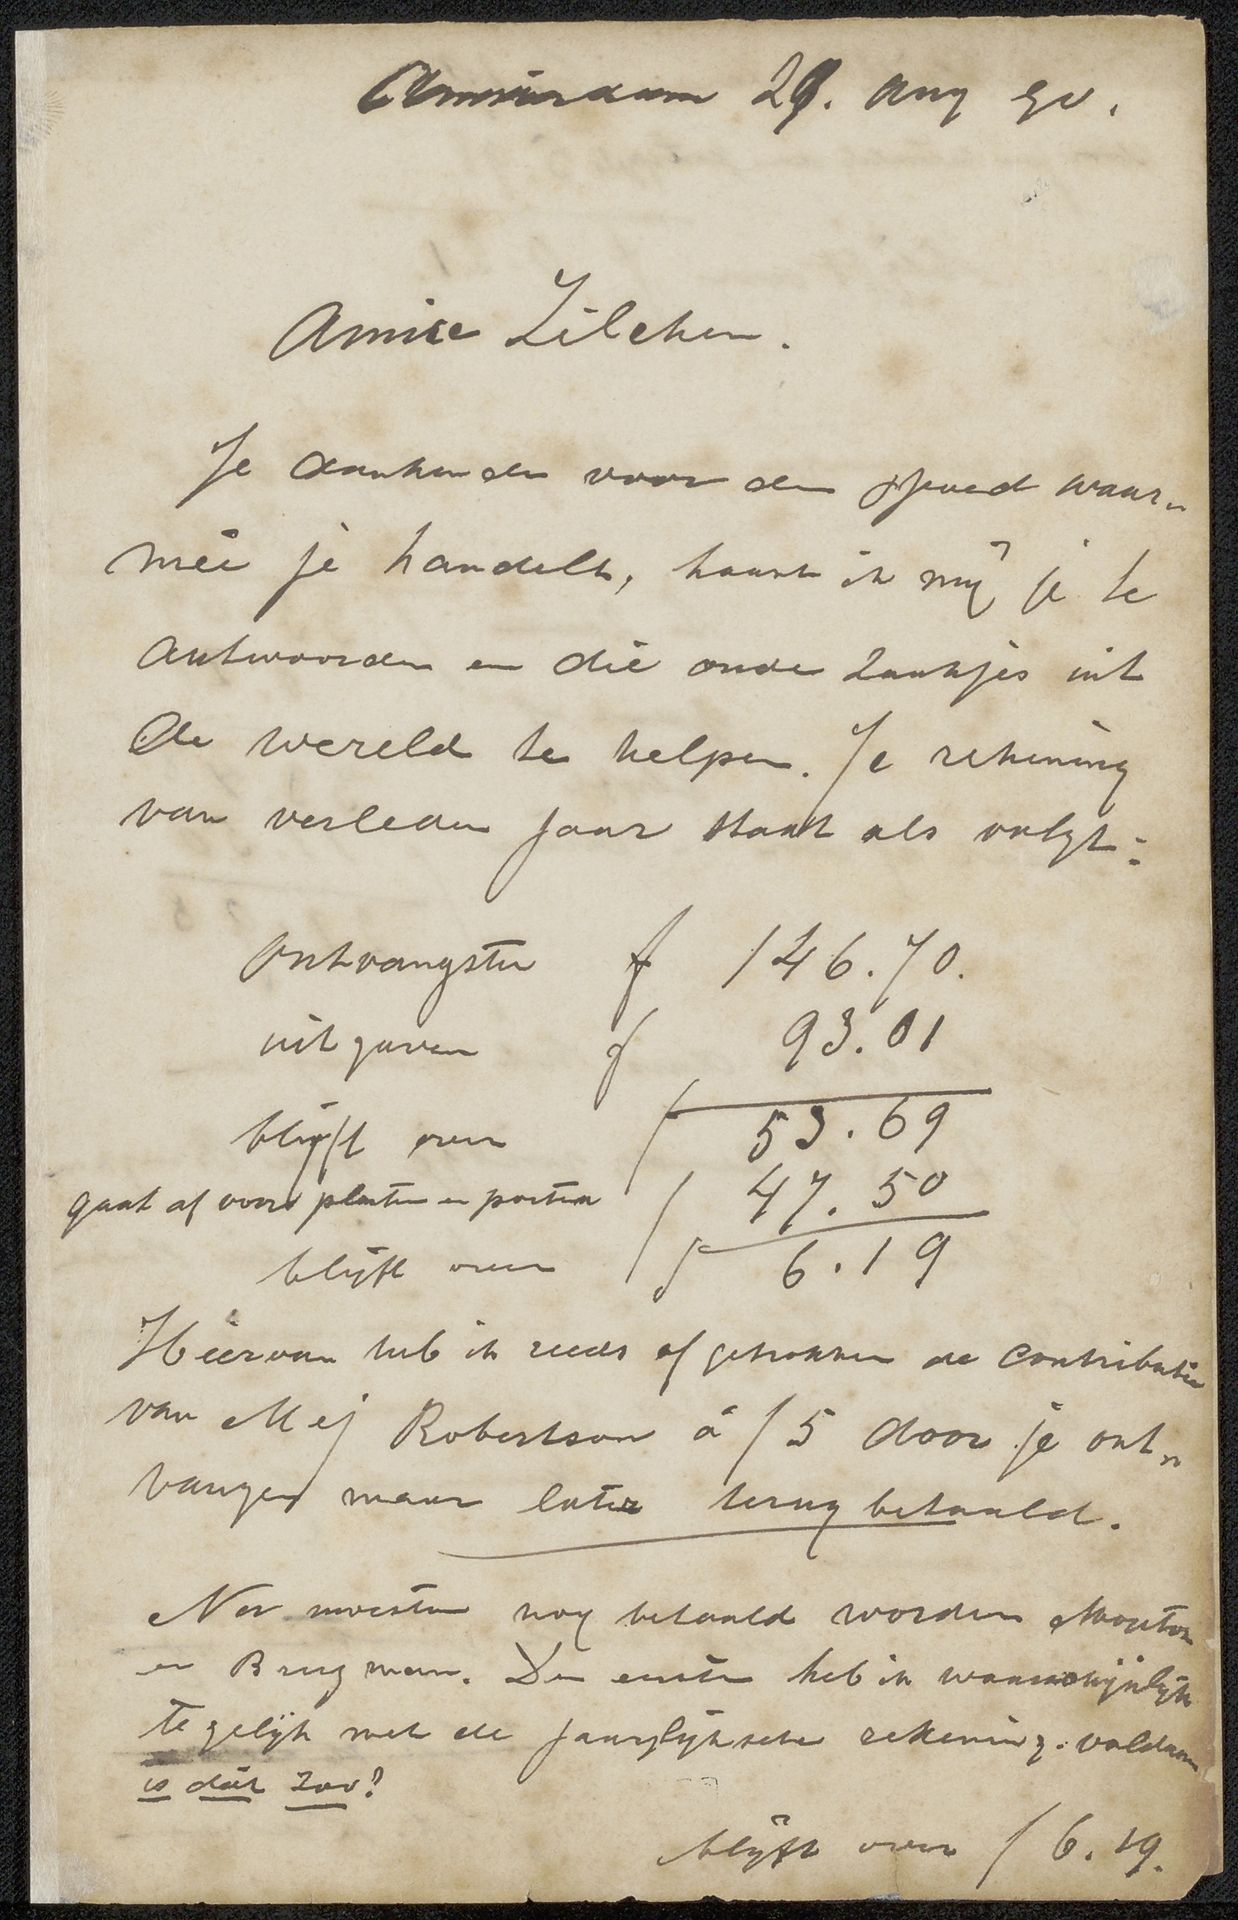 Amsterdam 29. Aug 90.
Amice Zilcken.
Je dankende voor den spoed waar„
meê je handelt, haast ik mij je te
antwoorden en die oude zaakjes uit
de wereld te helpen. Je rekening
van verleden jaar staat als volgt:
ontvangsten f 146.70.
uitgaven f 93.01
blijft over f 53.69
gaat af voor platen en porten f 47.50
blijft over f 6.19
Hiervan heb ik reeds afgetrokken de contributie
van Mej Robertson á f 5 door je ont„
vangen maar later terug betaald.
Nu moesten nog betaald worden Mouton
en Brugman. Den eersten heb ik waarschijnlijk
tegelijk met de jaarlijksche rekening voldaan
is dát zoo?
blijft over f 6.19.